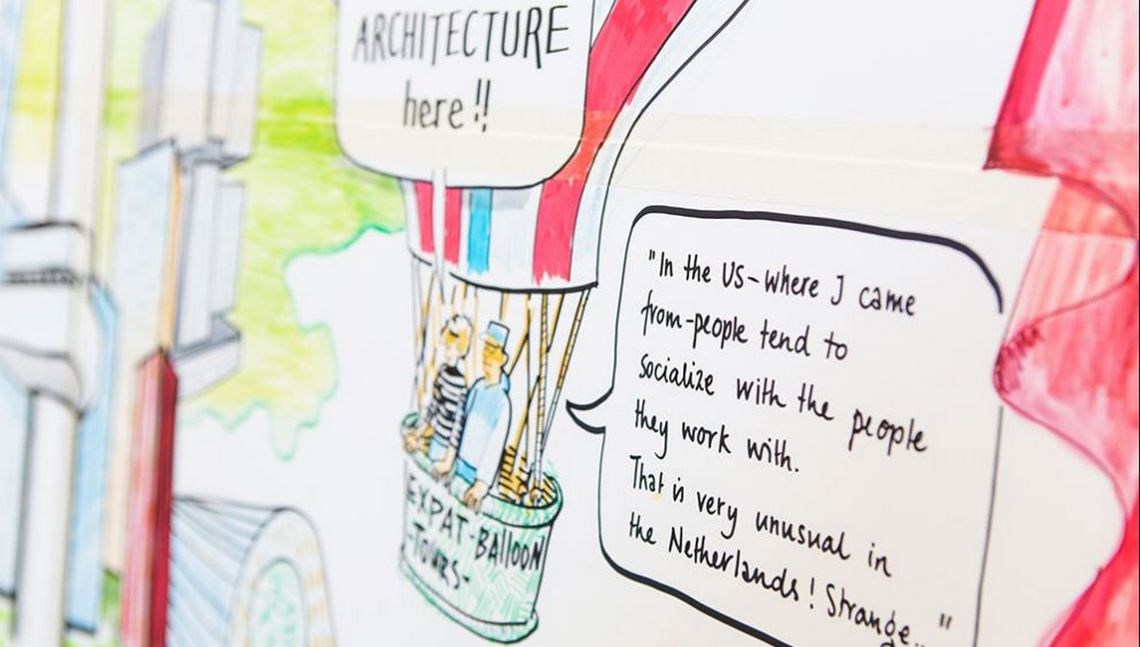 ARCHITECTURE
here!!
"In the US-where I came
from-people tend to
socialize with the people
they work with.
That is very unusual in
the Netherlands! Strange..."
EXPAT-BALLOON
-TOURS-